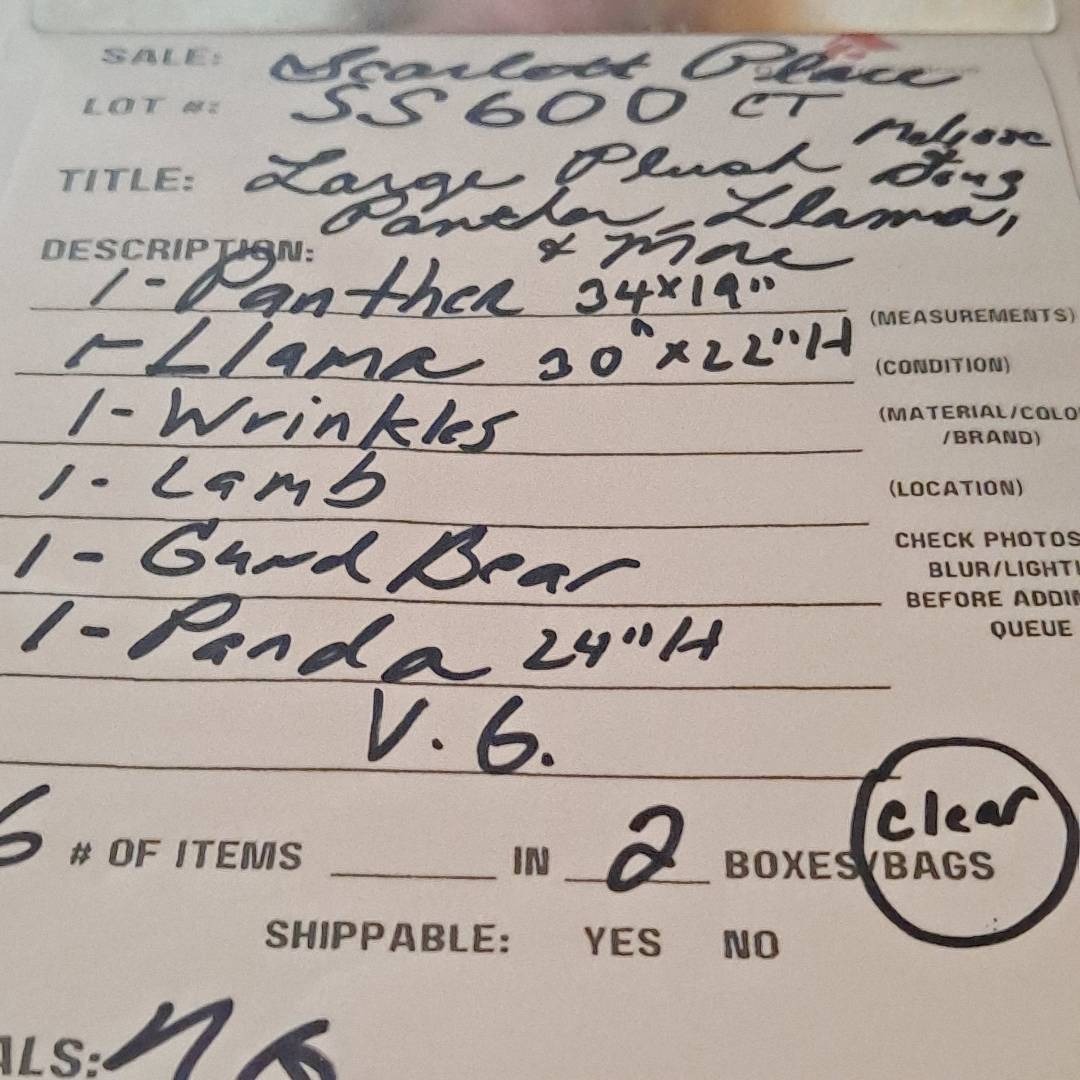 SALE: Scarlett Place
LOT #: SS600 CT
TITLE: Large Plush Melissa Doug
Panther, Llama,
& More
DESCRIPTION:
1-Panther 34x19"
(MEASUREMENTS)
1-Llama 30"x22"H
(CONDITION)
1-Wrinkles
(MATERIAL/COLO
/BRAND)
1- Lamb
(LOCATION)
1- Gund Bear
CHECK PHOTOS
BLUR/LIGHTI
BEFORE ADDIN
QUEUE
1- Panda 24"H
V.G.
6 # OF ITEMS IN 2 BOXES/BAGS clear
SHIPPABLE: YES NO
ALS: